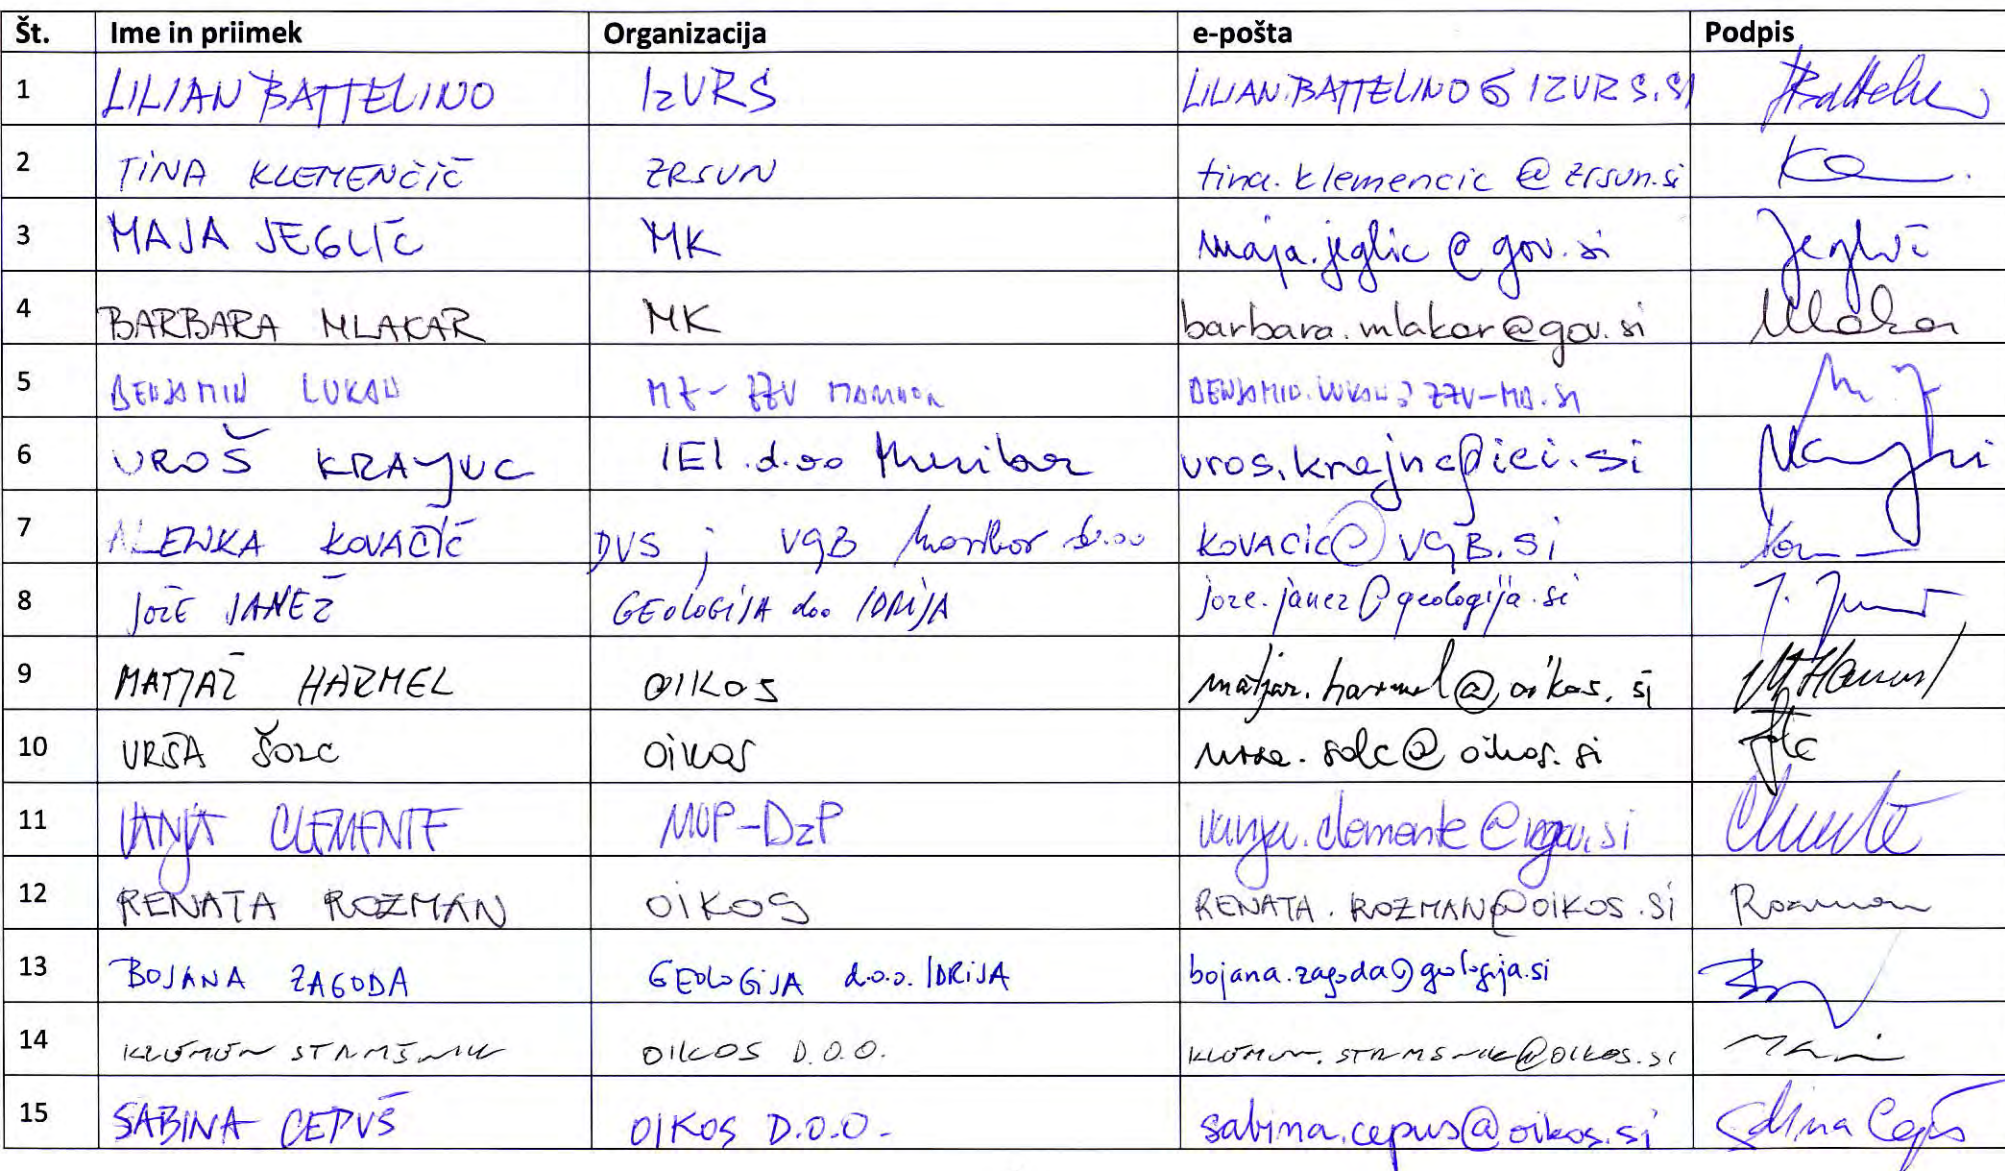 Št. Ime in priimek Organizacija e-pošta Podpis
1 LILIAN BATTELINO IzVRS LILIAN.BATTELINO@IZVRS.SI
2 TINA KLEMENČIČ ZRSVN tina.klemencic@zrsvn.si
3 MAJA JEGLIČ MK maja.jeglic@gov.si Jeglič
4 BARBARA MLAKAR MK barbara.mlakar@gov.si Mlakar
5 BENJAMIN LUKAN MZ - ZZV MARIBOR BENJAMIN.LUKAN@ZZV-MB.SI
6 UROŠ KRAJNC IEI d.o.o Maribor uros.krajnc@iei.si
7 ALENKA KOVAČIČ DVS; VGB Maribor d.o.o kovacic@VGB.si
8 JOŽE JANEŽ GEOLOGIJA d.o.o IDRIJA joze.janez@geologija.si
9 MATJAŽ HARMEL OIKOS matjaz.harmel@oikos.si
10 URŠA ŠOLC Oikos ursa.solc@oikos.si
11 VANJA CLEMENTE MOP-DzP vanja.clemente@gov.si
12 RENATA ROZMAN OIKOS RENATA.ROZMAN@OIKOS.SI Rozman
13 BOJANA ZAGODA GEOLOGIJA d.o.o. IDRIJA bojana.zagoda@geologija.si
14 KLEMEN STRMŠNIK OIKOS D.O.O. KLEMEN.STRMSNIK@OIKOS.SI
15 SABINA CEPUŠ OIKOS D.O.O. sabina.cepus@oikos.si Sabina Cepuš